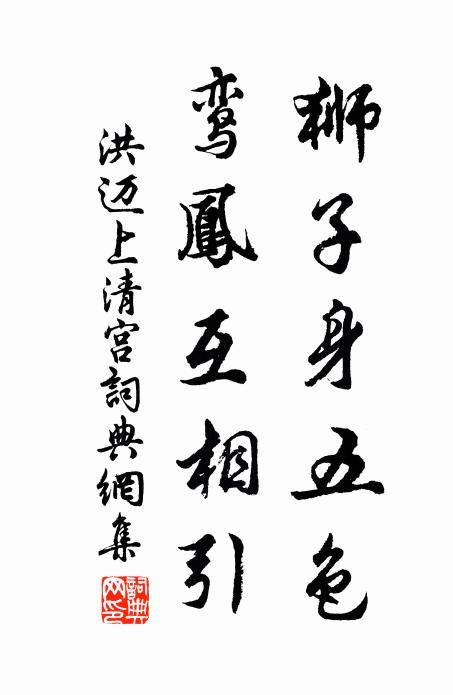 狮子身五色
鸾鳳互相引
洪迈上清宫詞典網集
詞典网印